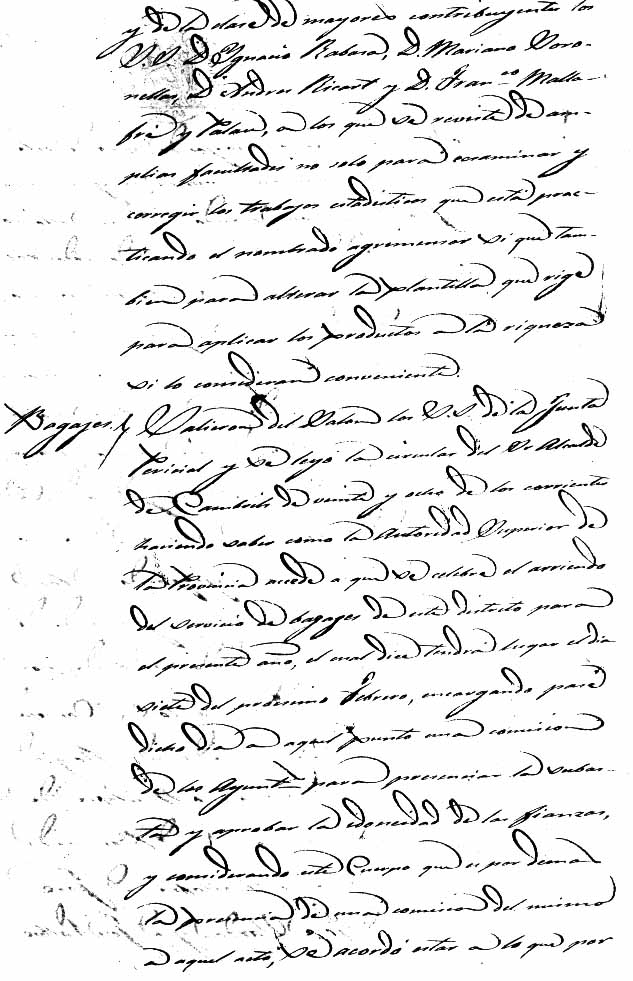 y de la clase de mayores contribuyentes los
S.S. D. Ygnacio Rabasa, D. Mariano Toro-
nellas, D. Andres Ricart y D. Fran.co Malla-
fré y Palau, a los que se reviste de am-
plias facultades no solo para ecsaminar y
corregir los trabajos estadisticos que está prac-
ticando el nombrado agrimensor si que tam-
bien para alterar la plantilla que rige
para aplicar los productos a la riqueza
si lo consideran conveniente.
Bagajes } Salieron del Salon los S.S. de la Junta
Pericial y se leyó la circular del Sr. Alcalde
de Cambrils de veinte y ocho de los corrientes
haciendo saber como la Autoridad Superior de
la Provincia accede a que se celebre el arriendo
del servicio de bagajes de este distrito para
el presente año, el cual dice tendrá lugar el dia
siete del procsimo Febrero, encargando para
dicho dia a aquel punto una comision
de los Ayuntos para presenciar la subas-
ta y aprobar la idoneidad de las fianzas,
y considerando este Cuerpo que es por demas
la presencia de una comision del mismo
a aquel acto, se acordó estar a lo que por